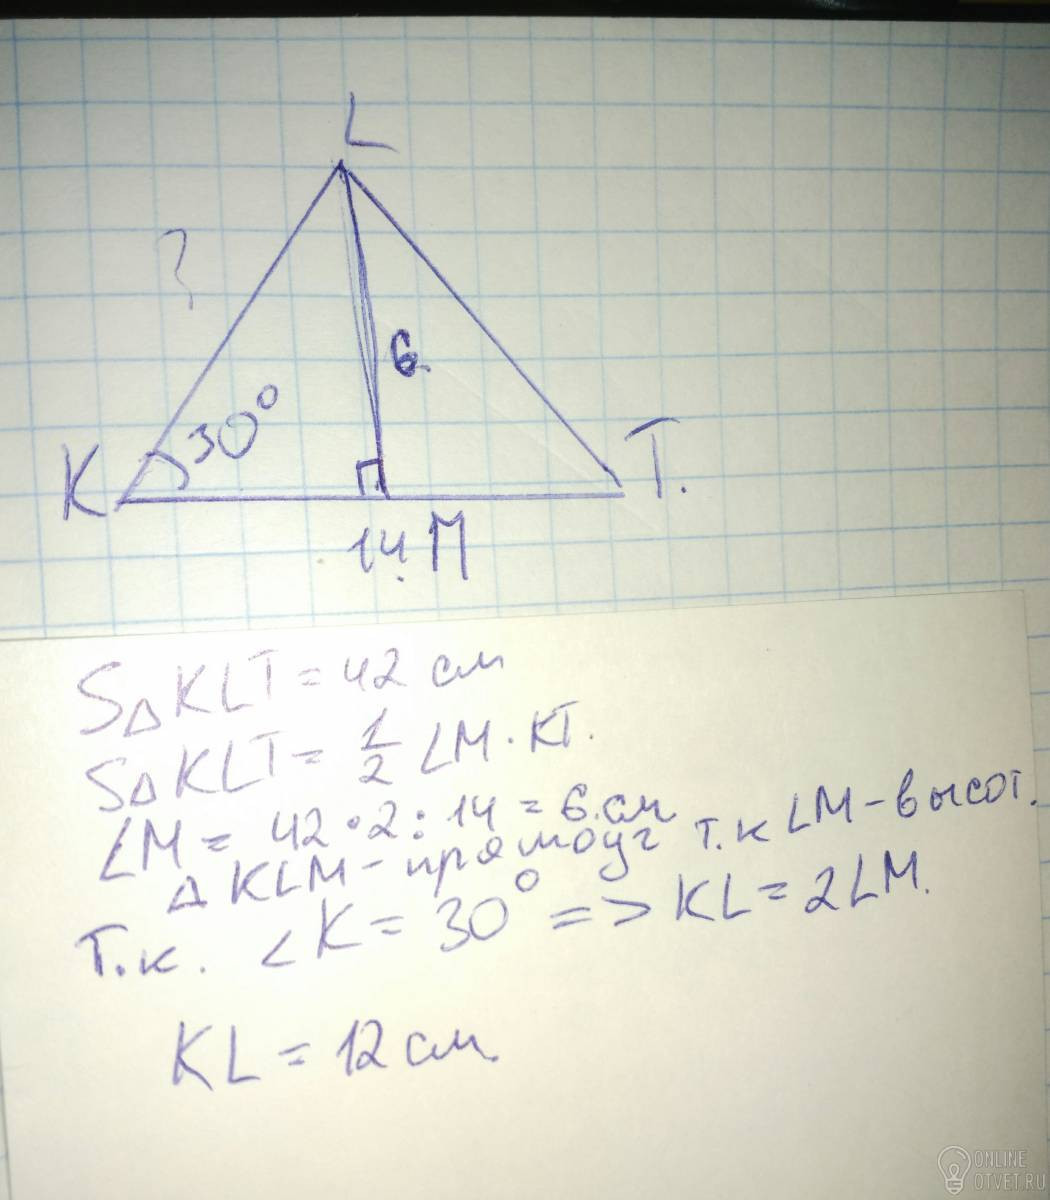 L
?
6
30°
K
T.
14. M
S△KLT = 42 см
S△KLT = 1/2 LM · KT.
LM = 42 · 2 : 14 = 6 см
△ KLM - прямоуг т.к LM - высот.
Т.к. <K = 30° => KL = 2LM.
KL = 12 см
ONLINE
OTVET.RU